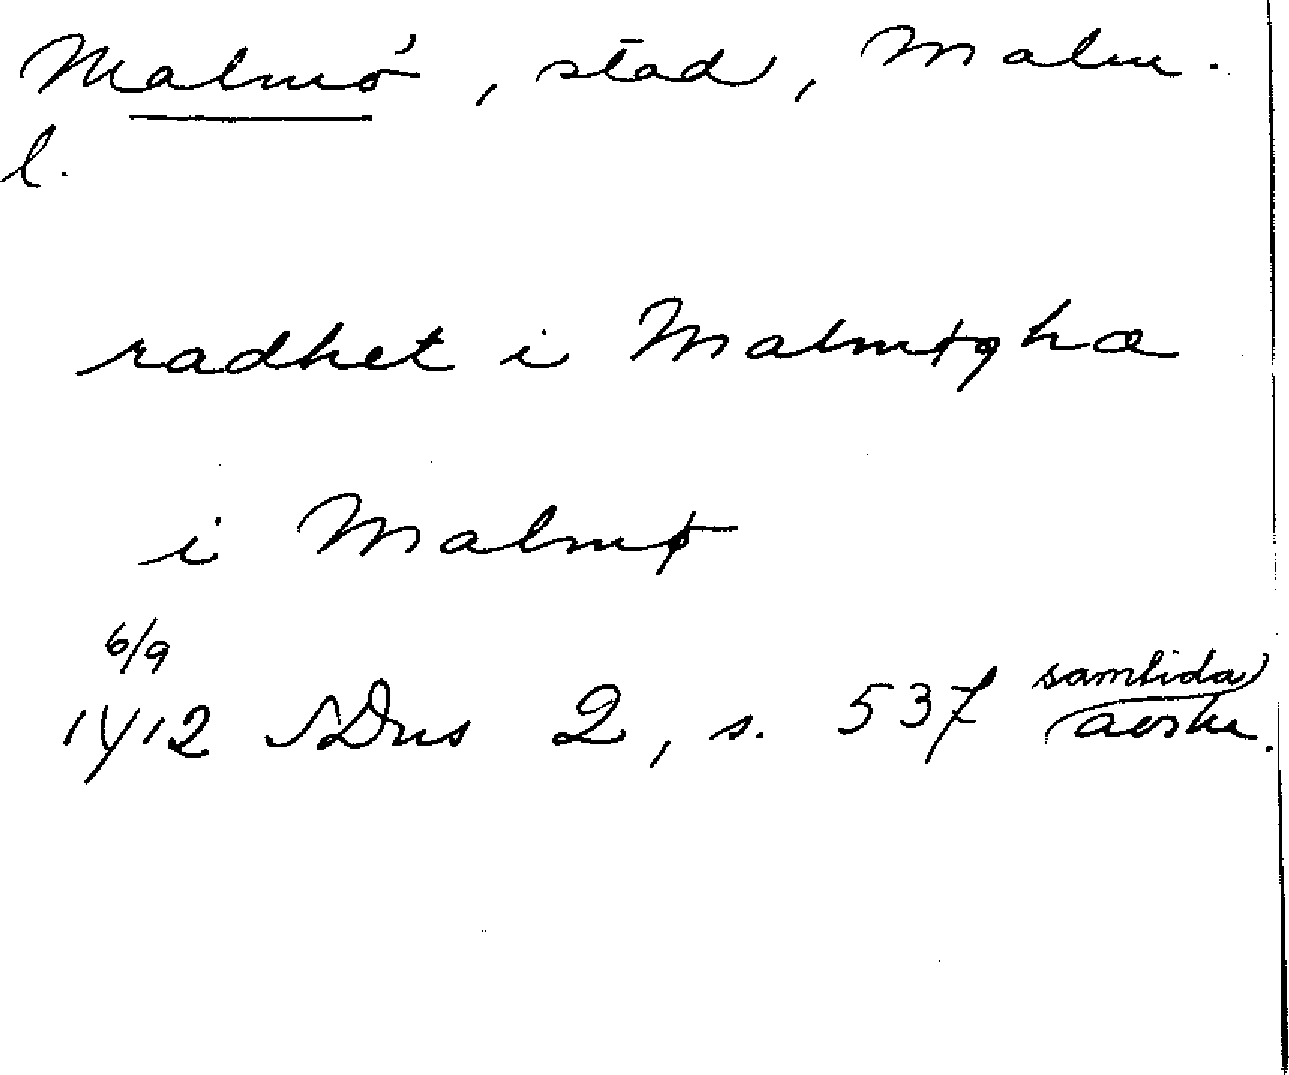 Malmö, stad, Malm.
l.
radhet i Malmøghæ
i Malmø
6/9
1412 SDns 2, s. 537 samtida
avskr.